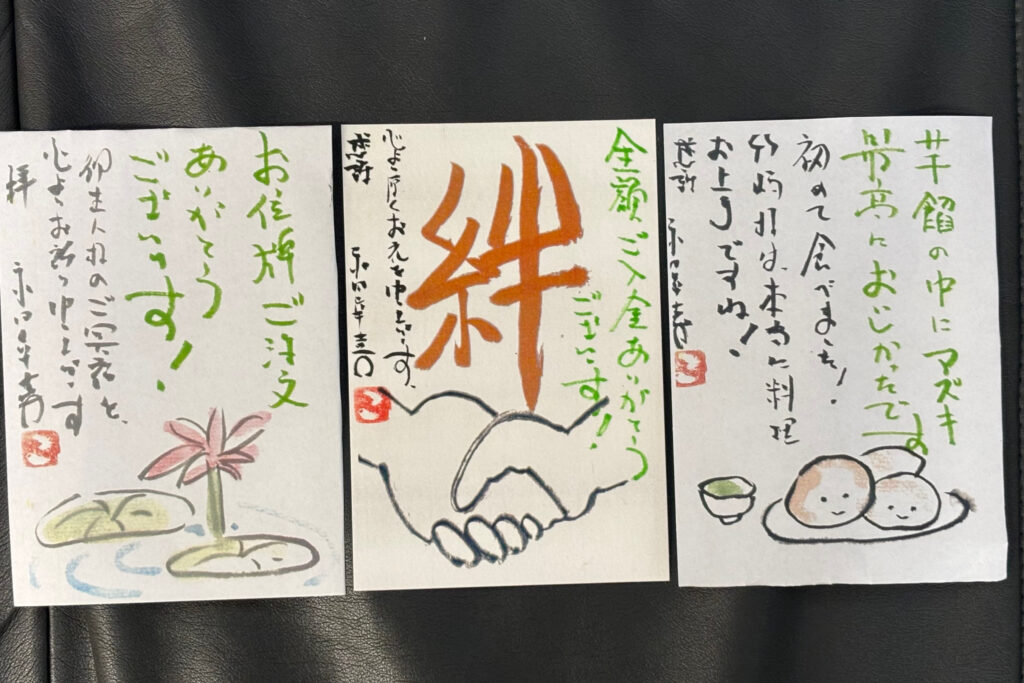 お位牌ご注文
ありがとう
ございます!
御主人様のご冥福を、
心よりお祈り申し上げます
拝
全額ご入金ありがとう
ございます!
絆
心より厚くお礼を申し上げます。
感謝
芋餡の中にアズキ
最高においしかったです
初めて食べました!
竹崎様は、本当に料理
お上手ですね!
感謝